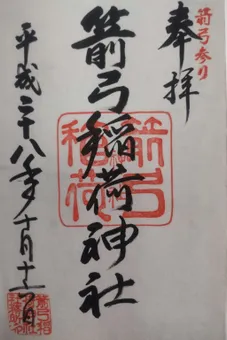 箭弓参り
奉拝
箭弓稲荷神社
箭弓
稲荷
平成二十八年十月十二日